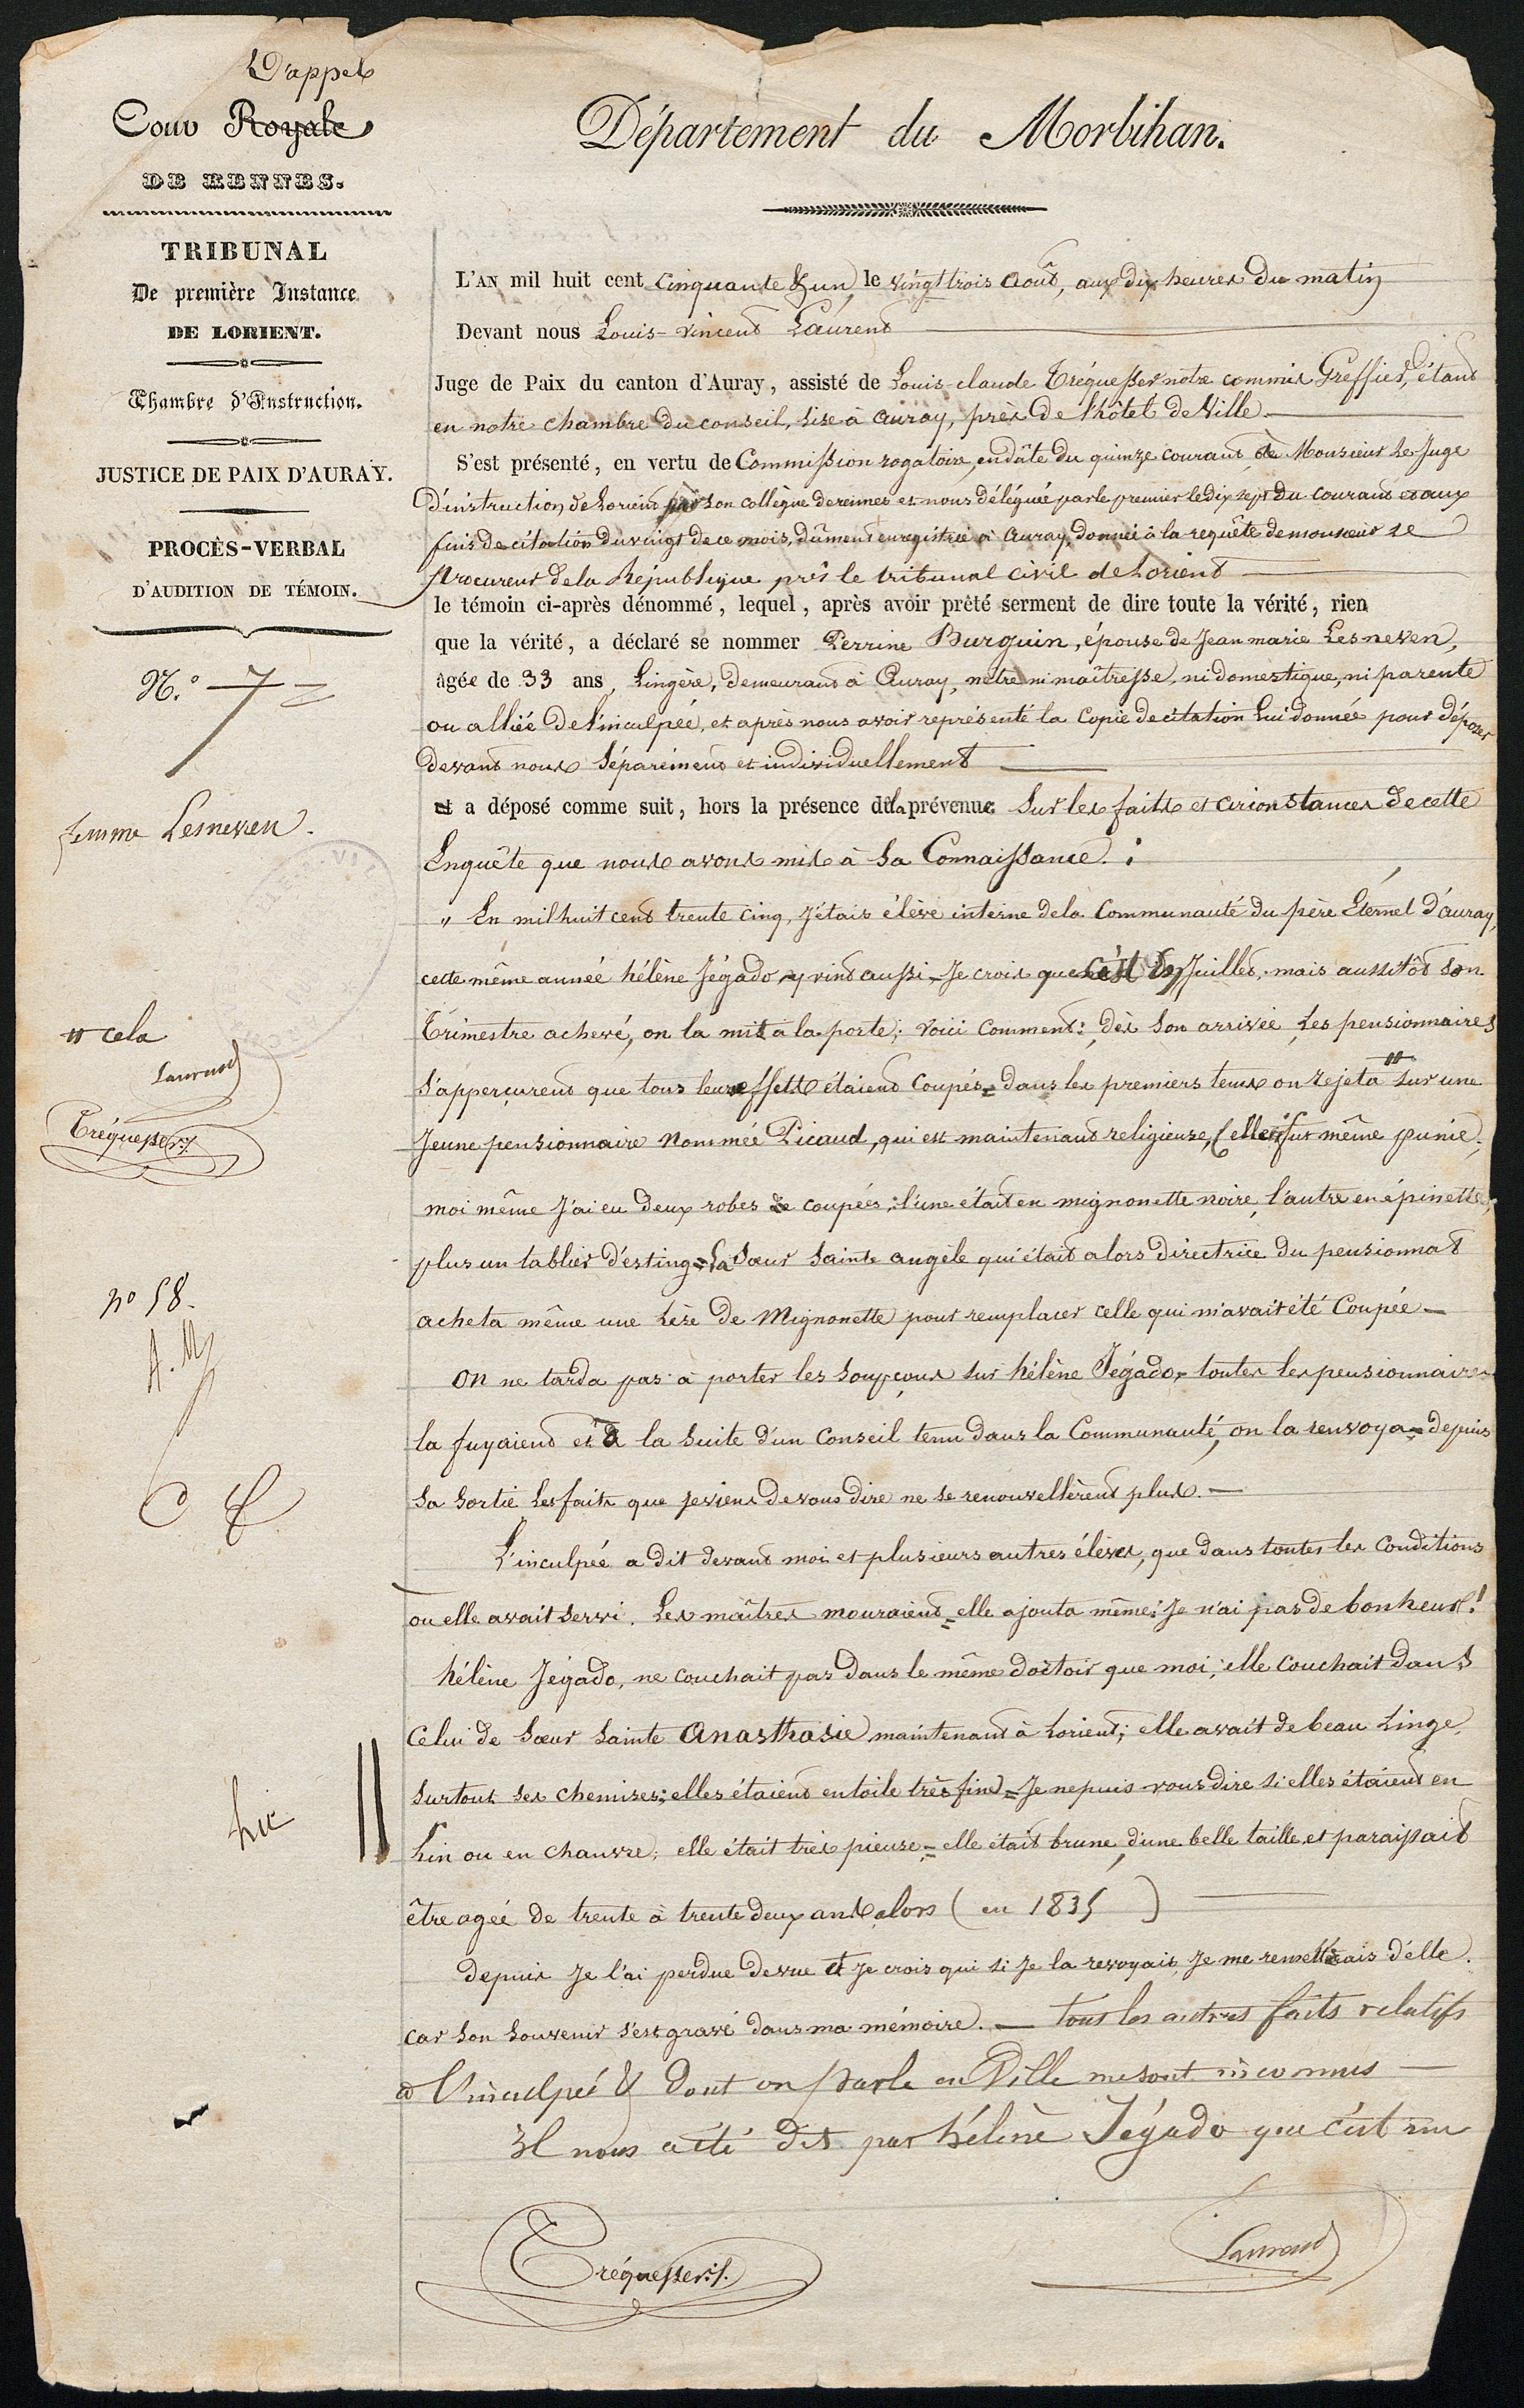 D'appel
Cour Royale
DE RENNES.
TRIBUNAL
De première Instance
DE LORIENT.
Chambre d'Instruction.
JUSTICE DE PAIX D'AURAY.
PROCÈS-VERBAL
D'AUDITION DE TÉMOIN.
N.° 7
femme Lesneven.
" cela
Laurent
Tréquesser
n° 58.
hic
Département du Morbihan.
L'AN mil huit cent cinquante & un, le vingt trois août, aux dix heures du matin
Devant nous Louis-vincent Laurent
Juge de Paix du canton d'Auray, assisté de Louis-claude Tréquesser notre commis Greffier, étant
en notre chambre du conseil, sise à auray, près de l'hôtel de Ville
S'est présenté, en vertu de Commission rogatoire, en dâte du quinze courant, de Monsieur le Juge
d'instruction de Lorient son collègue de rennes et nous déléguée par le premier le dix sept du courant et aux
fins de citation du vingt de ce mois, dûment enregistrée à auray, donnée à la requête de monsieur le
procureur de la République près le tribunal civil de Lorient
le témoin ci-après dénommé, lequel, après avoir prêté serment de dire toute la vérité, rien
que la vérité, a déclaré se nommer Perrine Burguin, épouse de Jean marie Lesneven,
âgée de 33 ans, Lingère, demeurant à Auray, n'être ni maîtresse, ni domestique, ni parente
ou alliée de l'inculpée, et après nous avoir représenté la copie de citation lui donnée pour déposer
devant nous séparément et individuellement
et a déposé comme suit, hors la présence de la prévenue sur les faits et circonstances de cette
Enquête que nous avons mis à sa Connaissance :
" En mil huit cent trente cinq, j'étais élève interne de la Communauté du père Éternel d'auray,
cette même année hélène Jégado y vint aussi - Je crois que c'est en Juillet, mais aussitôt son
trimestre achevé, on la mit à la porte; voici comment: dès son arrivée, les pensionnaires
s'apperçurent que tous leurs effets étaient coupés = dans les premiers tems on rejeta " sur une
Jeune pensionnaire nommée Picaud, qui est maintenant religieuse, (elle fut même punie.
moi même j'ai eu deux robes de coupées; l'une était en mignonette noire, l'autre en épinette,
plus un tablier d'esting = la sœur Sainte angèle qui était alors directrice du pensionnat
acheta même une Lèze de Mignonette pour remplacer celle qui m'avait été Coupée -
On ne tarda pas à porter les soupçons sur hélène Jégado, toutes les pensionnaires
la fuyaient et à la suite d'un conseil tenu dans la Communauté, on la renvoya = depuis
sa sortie les faits que je viens de vous dire ne se renouvellèrent plus. -
L'inculpée a dit devant moi et plusieurs autres élèves, que dans toutes les Conditions
où elle avait servi. Les maîtres mouraient = elle ajouta même: Je n'ai pas de bonheur!
hélène Jégado, ne couchait pas dans le même doctoir que moi; elle couchait dans
celui de Sœur Sainte Anasthasie maintenant à Lorient; elle avait de beau Linge,
surtout ses chemises; elles étaient en toile très fine = Je ne puis vous dire si elles étaient en
Lin ou en chanvre; elle était très pieuse = elle était brune, d'une belle taille, et paraissait
être agée de trente à trente deux ans alors (en 1835)
depuis je l'ai perdue de vue et je crois qui si je la revoyais, je me remettrais d'elle.
car son souvenir s'est gravé dans ma mémoire. - tous les autres faits relatifs
à l'inculpée & dont on parle en Ville me sont inconnus -
Il nous a été dit par hélène Jégado que c'est un
Tréquesser
Laurent